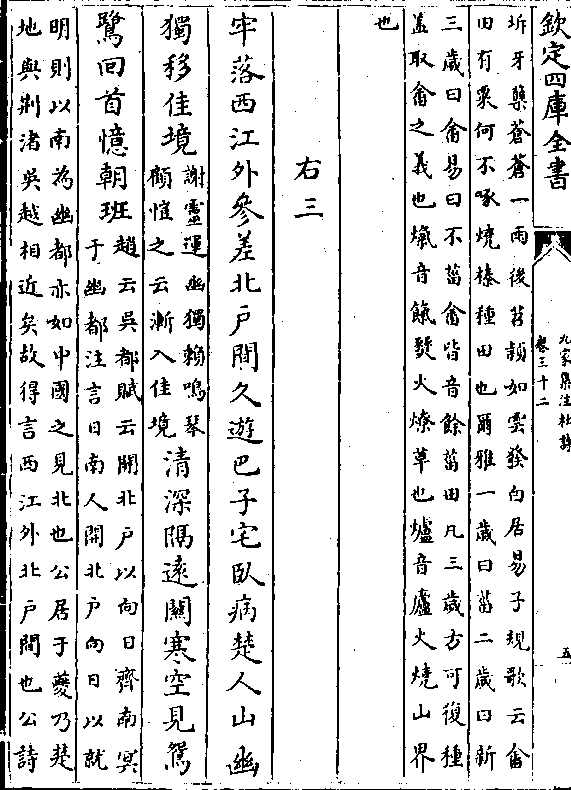 欽定四庫全書
九家集注杜詩
卷三十二
五
坼牙櫱蒼蒼一雨後苕穎如雲發白居易子規歌云畬
田有粟何不啄燒榛種田也爾雅一歲曰菑二歲曰新
三歲曰畬易曰不菑畬皆音餘菑田凡三歲方可復種
盖取畬之義也煼音餼㷼火燎草也爐音廬火燒山界
也
右三
牢落西江外參差北户間久遊巴子宅卧病楚人山幽
獨移佳境
謝靈運幽獨賴鳴琴
顧愷之云漸入佳境
清深隔遠關寒空見鴛
鷺回首憶朝班
趙云吳都賦云開北户以向日齊南冥
于幽都注言日南人開北户向日以就
明則以南為幽都亦如中國之見北也公居于夔乃楚
地與荆渚吳越相近矣故得言西江外北户間也公詩